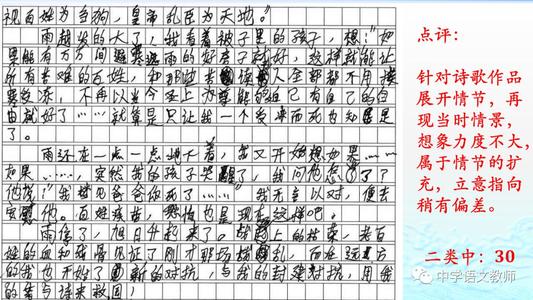 视百姓为刍狗，皇帝乱臣为天地。
雨越炎的大了，我看着被子里的孩子，想：“如
果能有万万间遮暴遮雨的好房子就好，这样就能让
所有苦难的百姓，和那些读人全部都不用
受冻，不再以当今圣上为的自己有自己的自
由就好了……就算是只让我一个受冻而死为知足
了。
雨还在一点一点地大着，我又开始想如果……
如果……，突然我的孩子哭醒了，我问他怎么了？
他说：“我梦见爸爸你死了……”我无言以对，便去
安慰他。百姓疾苦，恐怕也是现在这样吧。
雨停了，旭日升起来了。上的枯，老百
姓的血和我骨见证了刚才那场乱，而在远方
的我也开始了新的对抗，与我的封对抗，用我
的笔与诗来救国！
点评：
针对诗歌作品
展开情节，再
现当时情景，
想象力度不大，
属于情节的扩
充，立意指向
稍有偏差。
二类中：30
中学语文教师